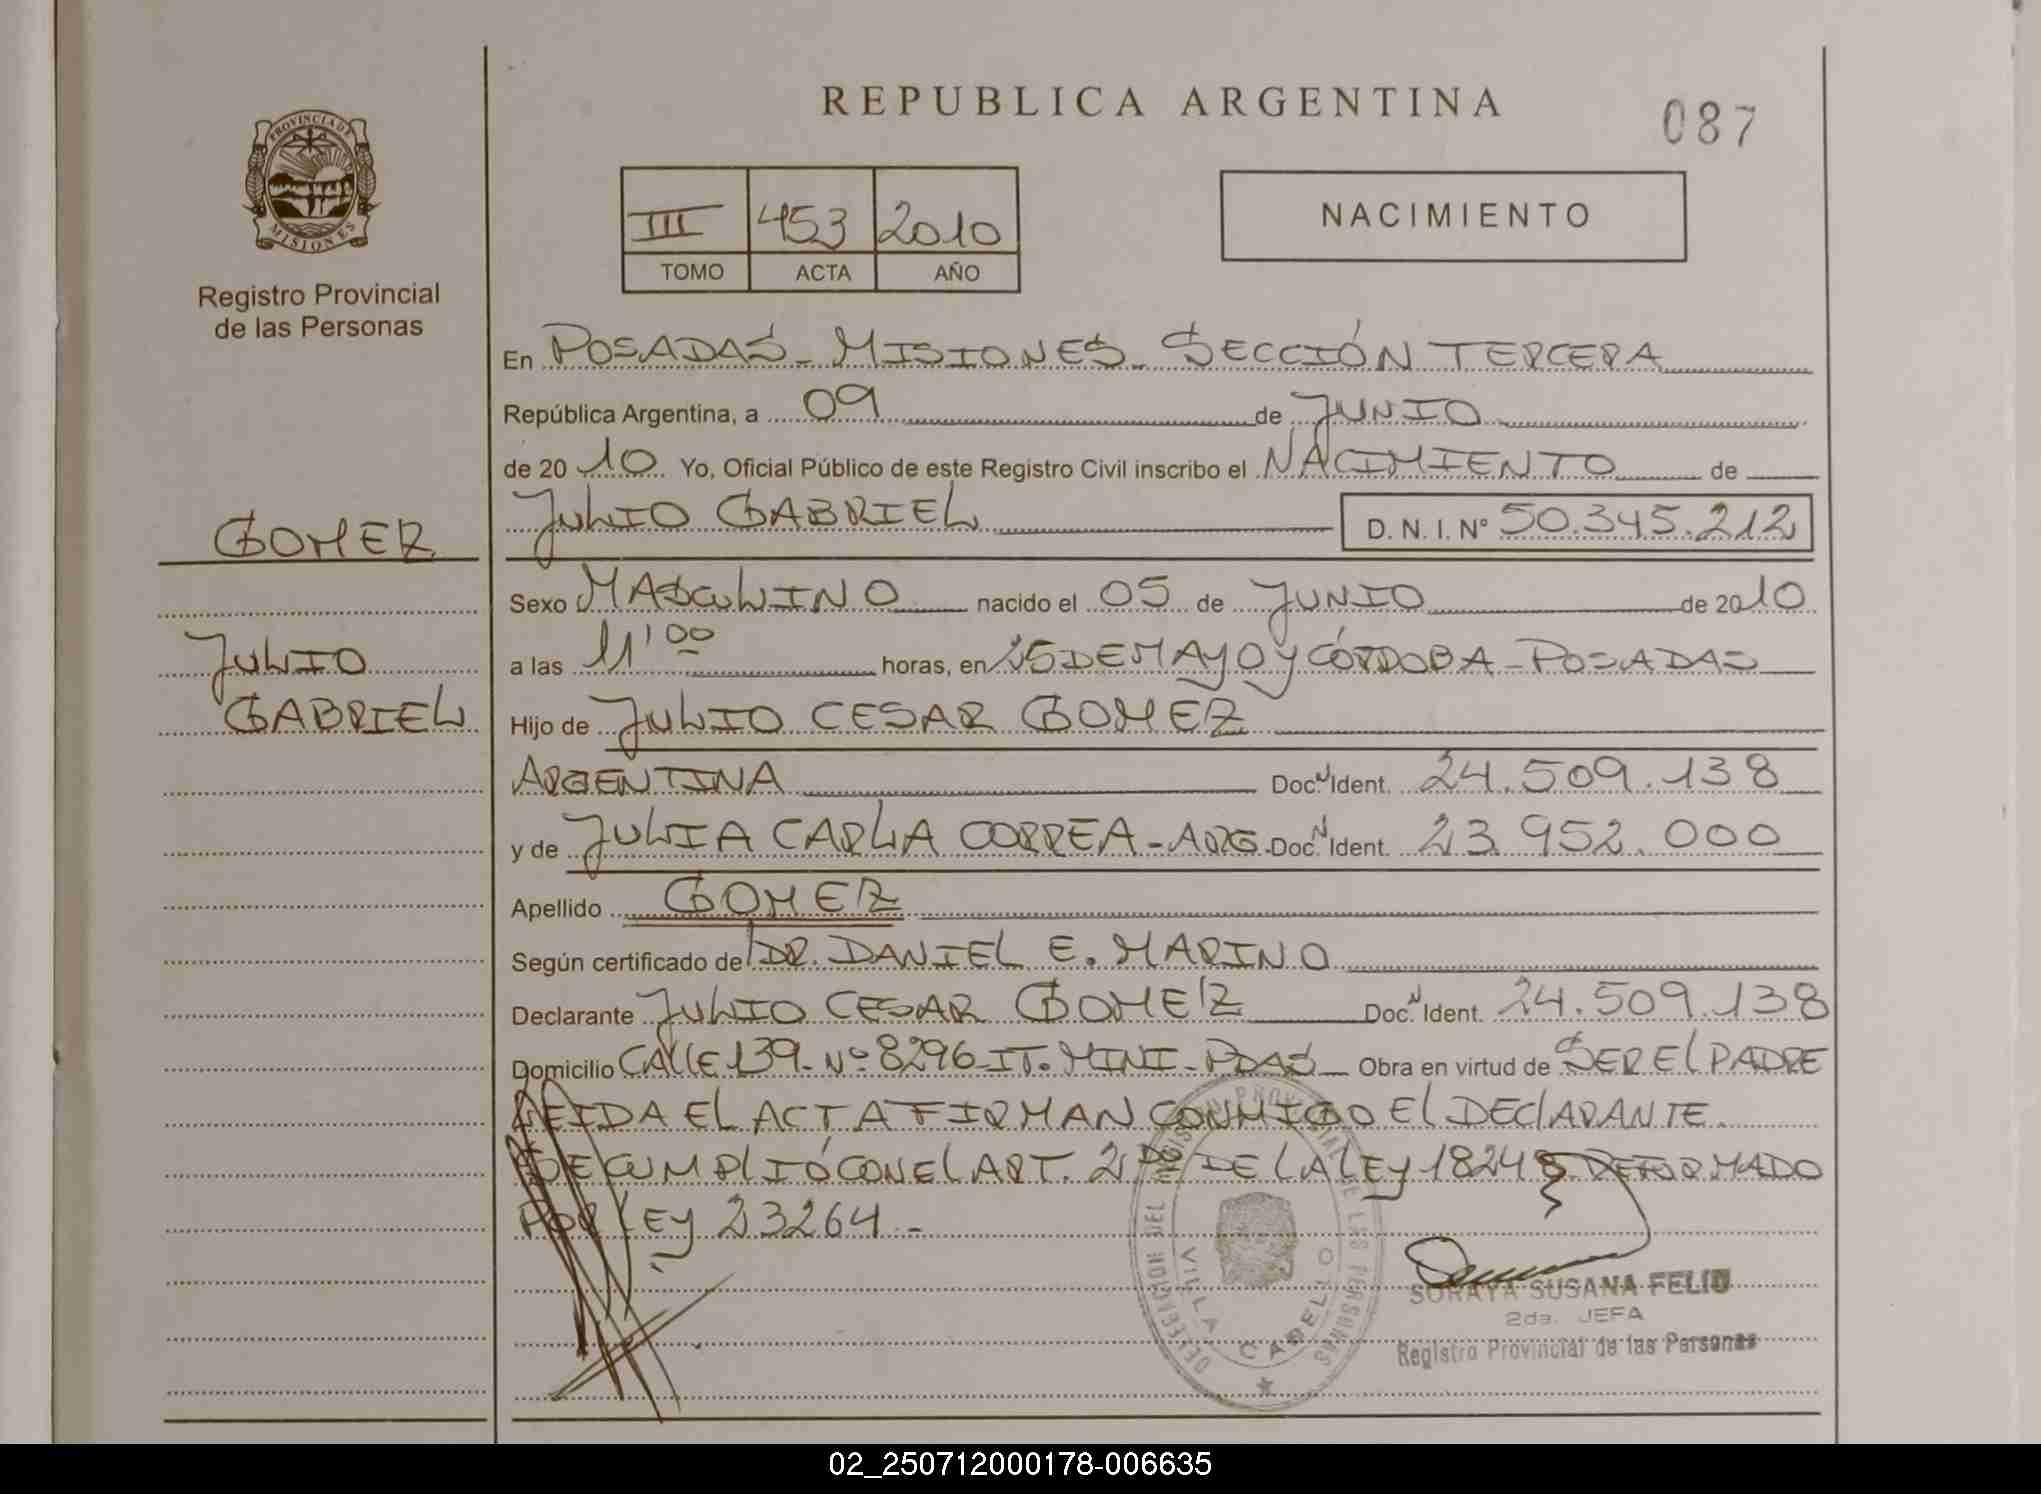 REPUBLICA ARGENTINA
087
PROVINCIA DE
MISIONES
Registro Provincial
de las Personas
III 453 2010
TOMO ACTA AÑO
NACIMIENTO
En POSADAS - MISIONES - SECCIÓN TERCERA
República Argentina, a 09 de JUNIO
de 20 10 Yo, Oficial Público de este Registro Civil inscribo el NACIMIENTO de
JULIO GABRIEL D. N. I. Nº 50.345.212
GOMEZ
Sexo MASCULINO nacido el 05 de JUNIO de 2010
a las 11'00 horas, en 25 DE MAYO Y CÓRDOBA - POSADAS
JULIO
GABRIEL
Hijo de JULIO CESAR GOMEZ
ARGENTINA Doc. N Ident. 24.509.138
y de JULIA CARLA CORREA - ARG. Doc. N Ident. 23.952.000
Apellido GOMEZ
Según certificado de DR. DANIEL E. MARINO
Declarante JULIO CESAR GOMEZ Doc. N Ident. 24.509.138
Domicilio CALLE 139 - Nº 8296 - IT. MINI - PDAS Obra en virtud de SER EL PADRE
LEIDA EL ACTA FIRMAN CONMIGO EL DECLARANTE.
SE CUMPLIÓ CON EL ART. 2DO DE LA LEY 18248 REFORMADO
POR LEY 23264.-
DELEGACION DEL REGISTRO PROVINCIAL DE LAS PERSONAS
VILLA CABELLO
SORAYA SUSANA FELIU
2da. JEFA
Registro Provincial de las Personas
02_250712000178-006635